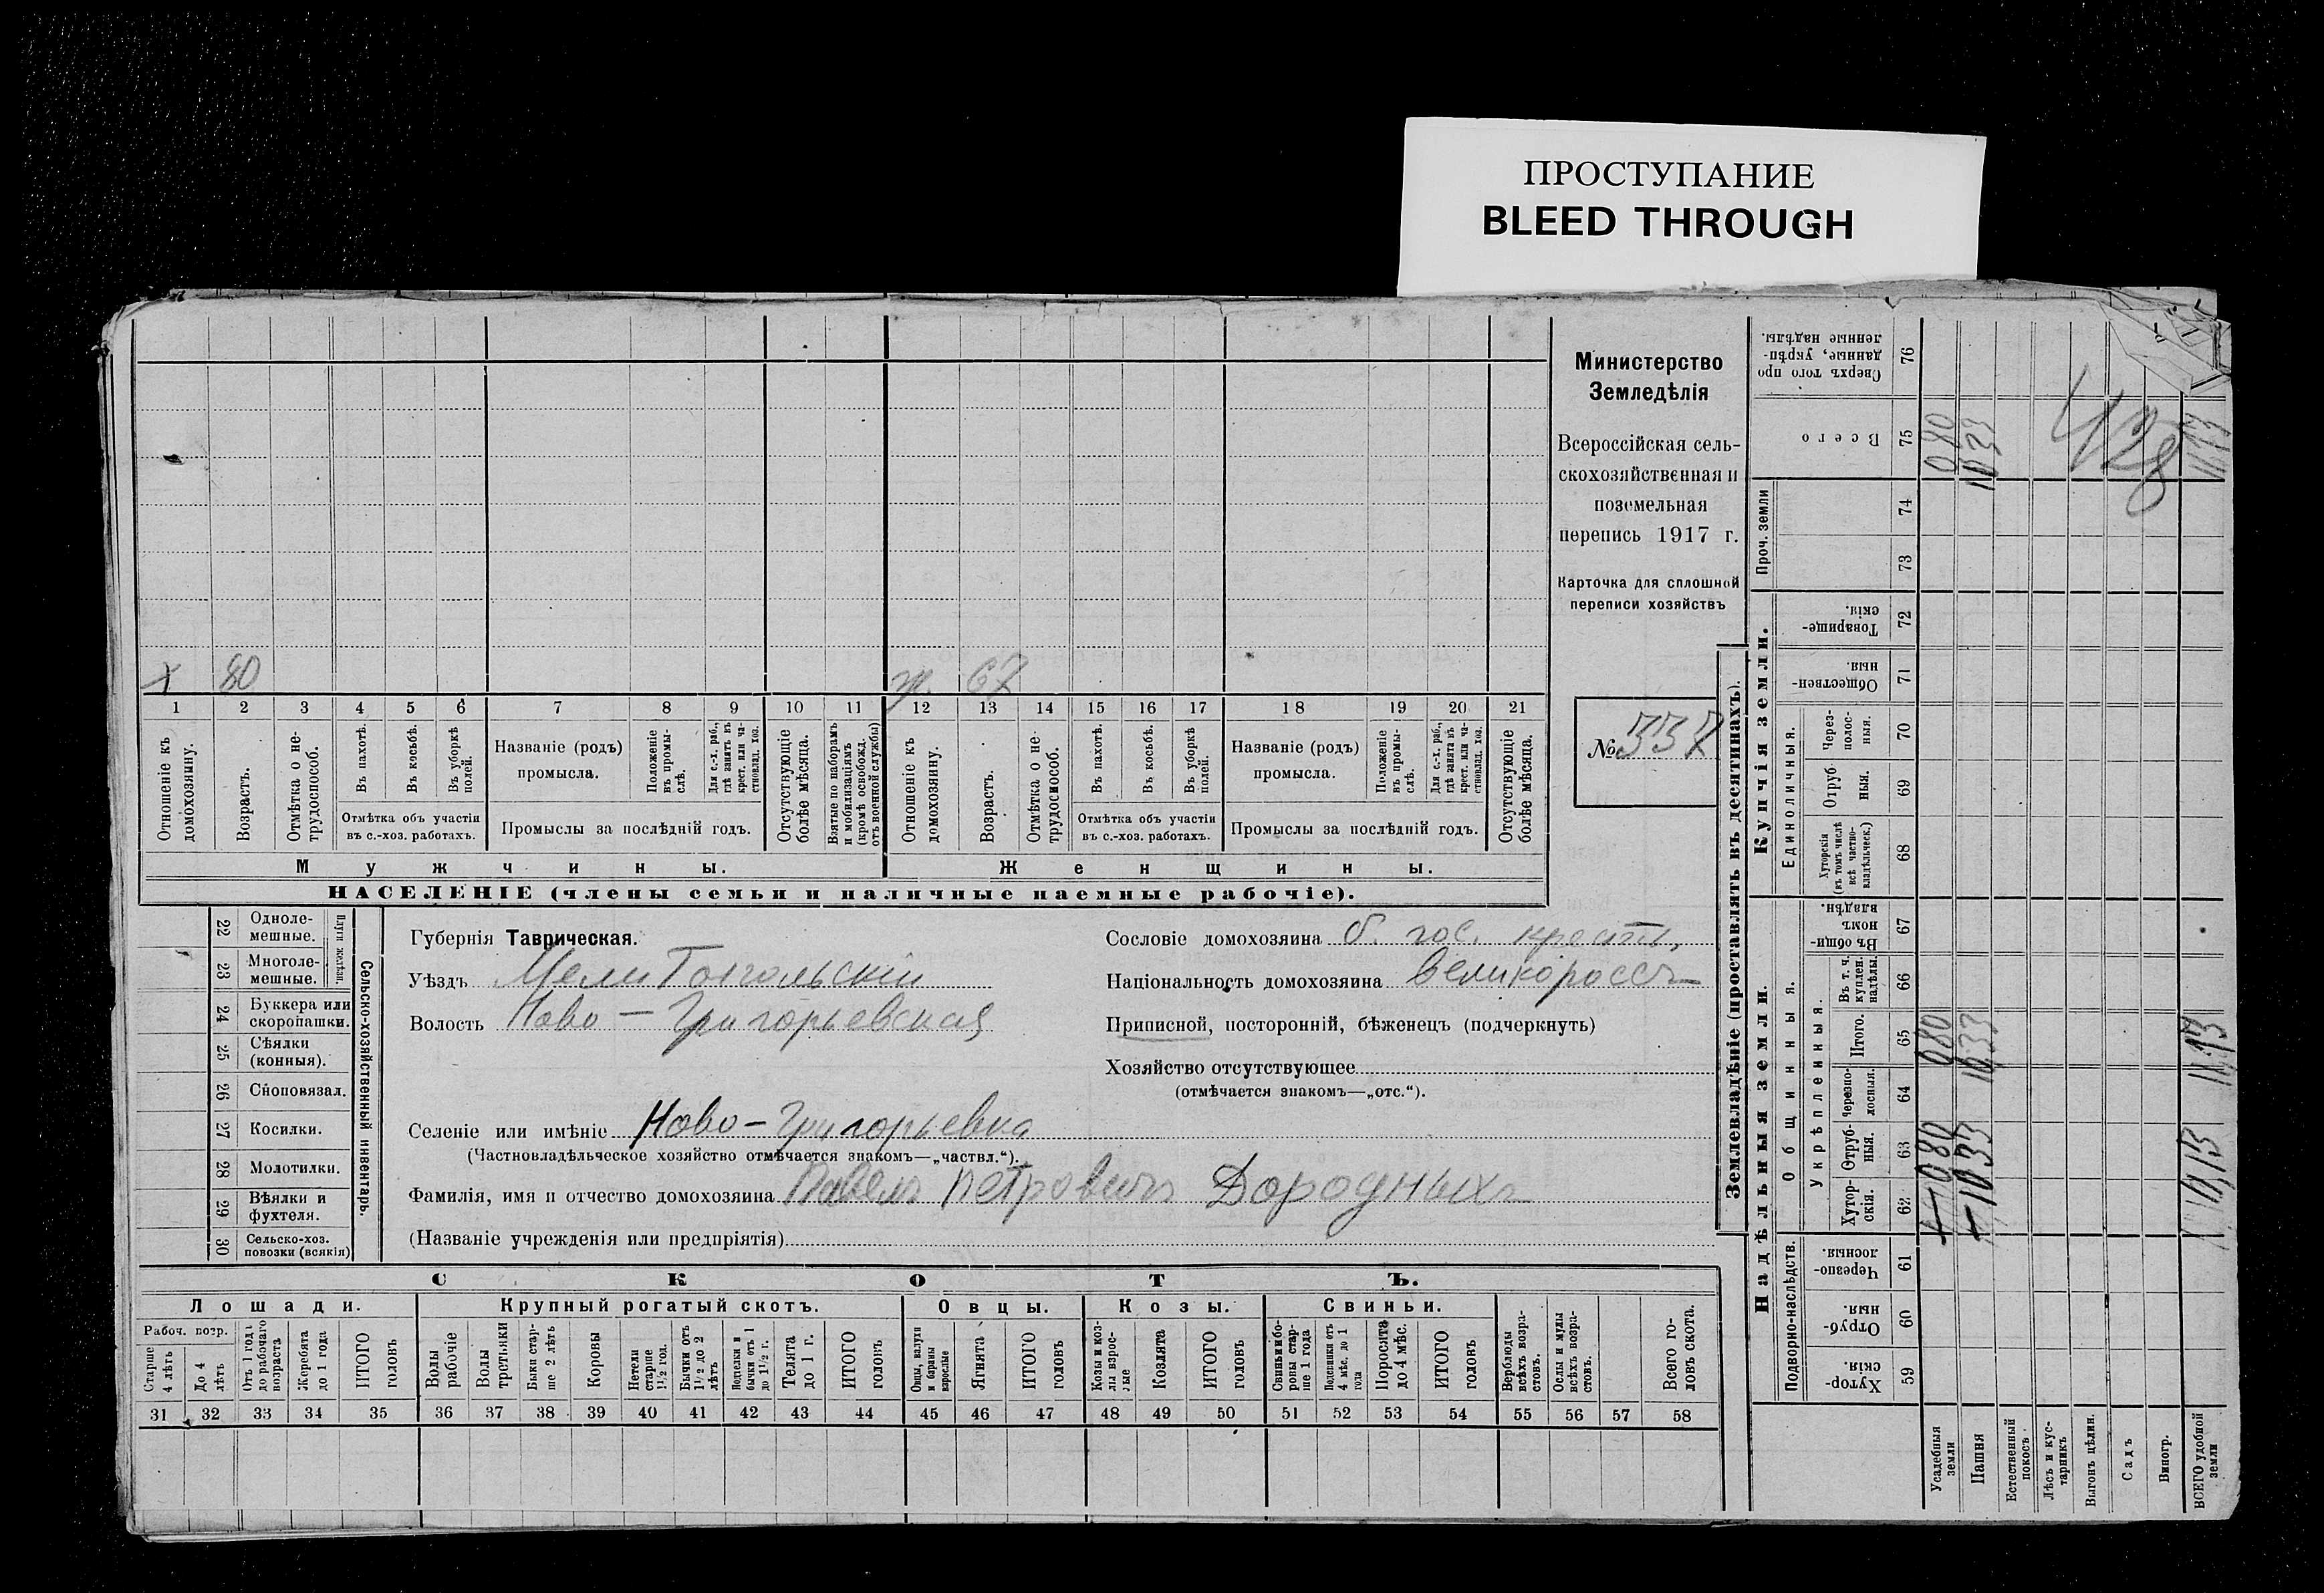 ПРОСТУПАНИЕ
BLEED THROUGH
Министерство
Земледѣлія
Всероссійская сель-
скохозяйственная и
поземельная
перепись 1917 г.
Карточка для сплошной
переписи хозяйствъ
№ 337
х 80 ж. 67
1 2 3 4 5 6 7 8 9 10 11 12 13 14 15 16 17 18 19 20 21
Отношеніе къ домохозяину.
Возрастъ.
Отмѣтка о не-трудоспособ.
Въ пахотѣ.
Въ косьбѣ.
Въ уборкѣ полей.
Отмѣтка объ участіи
въ с.-хоз. работахъ.
Названіе (родъ)
промысла.
Положеніе въ промы-слѣ.
Для с.-х. раб., гдѣ занятъ въ крест. или ча-стновлад. хоз.
Промыслы за послѣдній годъ.
Отсутствующіе болѣе мѣсяца.
Взятые по наборамъ и мобилизаціямъ (кромѣ освобожд. отъ военной службы)
Отношеніе къ домохозяину.
Возрастъ.
Отмѣтка о не-трудоспособ.
Въ пахотѣ.
Въ косьбѣ.
Въ уборкѣ полей.
Отмѣтка объ участіи
въ с.-хоз. работахъ.
Названіе (родъ)
промысла.
Положеніе въ промы-слѣ.
Для с.-х. раб., гдѣ занята въ крест. или ча-стновлад. хоз.
Промыслы за послѣдній годъ.
Отсутствующіе болѣе мѣсяца.
Мужчины. Женщины.
НАСЕЛЕНІЕ (члены семьи и наличные наемные рабочіе).
22 Одноле-мешные.
23 Многоле-мешные.
Плуги желѣзн.
24 Буккера или скоропашки.
25 Сѣялки (конныя).
26 Сноповязал.
27 Косилки.
28 Молотилки.
29 Вѣялки и фухтеля.
30 Сельско-хоз. повозки (всякія)
Сельско-хозяйственный инвентарь.
Губернія Таврическая.
Уѣздъ Мелитопольскій
Волость Ново-Григорьевская
Сословіе домохозяина б. гос. крестн.
Національность домохозяина великороссъ
Приписной, посторонній, бѣженецъ (подчеркнуть)
Хозяйство отсутствующее
(отмѣчается знакомъ—„отс.“).
Селеніе или имѣніе Ново-Григорьевка
(Частновладѣльческое хозяйство отмѣчается знакомъ—„частвл.“).
Фамилія, имя и отчество домохозяина Павелъ Петровичъ Дородныхъ
(Названіе учрежденія или предпріятія)
СКОТЪ.
Лошади. Крупный рогатый скотъ. Овцы. Козы. Свиньи.
Рабоч. возр.
Старше 4 лѣтъ
До 4 лѣтъ
Отъ 1 года до рабочаго возраста
Жеребята до 1 года
ИТОГО головъ
Волы рабочіе
Волы третьяки
Быки стар-ше 2 лѣтъ
Коровы
Нетели старше 1½ год.
Бычки отъ 1½ до 2 лѣтъ
Подтелки и бычки отъ 1 до 1½ г.
Телята до 1 г.
ИТОГО головъ
Овцы, валухи и бараны взрослые
Ягнята
ИТОГО головъ
Козы и коз-лы взрос-лые
Козлята
ИТОГО головъ
Свиньи и бо-ровы стар-ше 1 года
Подсвинки отъ 4 мѣс. до 1 года
Поросята до 4 мѣс.
ИТОГО головъ
Верблюды всѣхъ возра-стовъ.
Ослы и мулы всѣхъ возра-стовъ.
Всего го-ловъ скота.
31 32 33 34 35 36 37 38 39 40 41 42 43 44 45 46 47 48 49 50 51 52 53 54 55 56 57 58
Землевладѣніе (проставлять въ десятинахъ).
Надѣльныя земли. Купчія земли. Проч. земли
Подворно-наслѣдств.
Общинныя.
Укрѣпленныя.
Единоличныя.
Хутор-скія. 59
Отруб-ныя. 60
Черезпо-лосныя. 61
Хутор-скія. 62
Отруб-ныя. 63
Черезпо-лосныя. 64
Итого. 65
Въ т. ч. куплен. надѣлы. 66
Въ общин-номъ владѣн. 67
Хуторскія (въ томъ числѣ всѣ частно-владѣльческ.) 68
Отруб-ныя. 69
Через-полос-ныя. 70
Обществен-ныя. 71
Товарище-скія. 72
73
74
Всего 75
Сверхъ того про-данные, укрѣп-ленные надѣлы. 76
Усадебныя земли 080 080 080
Пашня 1033 1033 1033
Естественный покосъ.
Лѣсъ и кус-тарникъ
Выгонъ цѣлин.
Садъ
Виногр.
ВСЕГО удобной земли 11,13 11,13 11,13
428